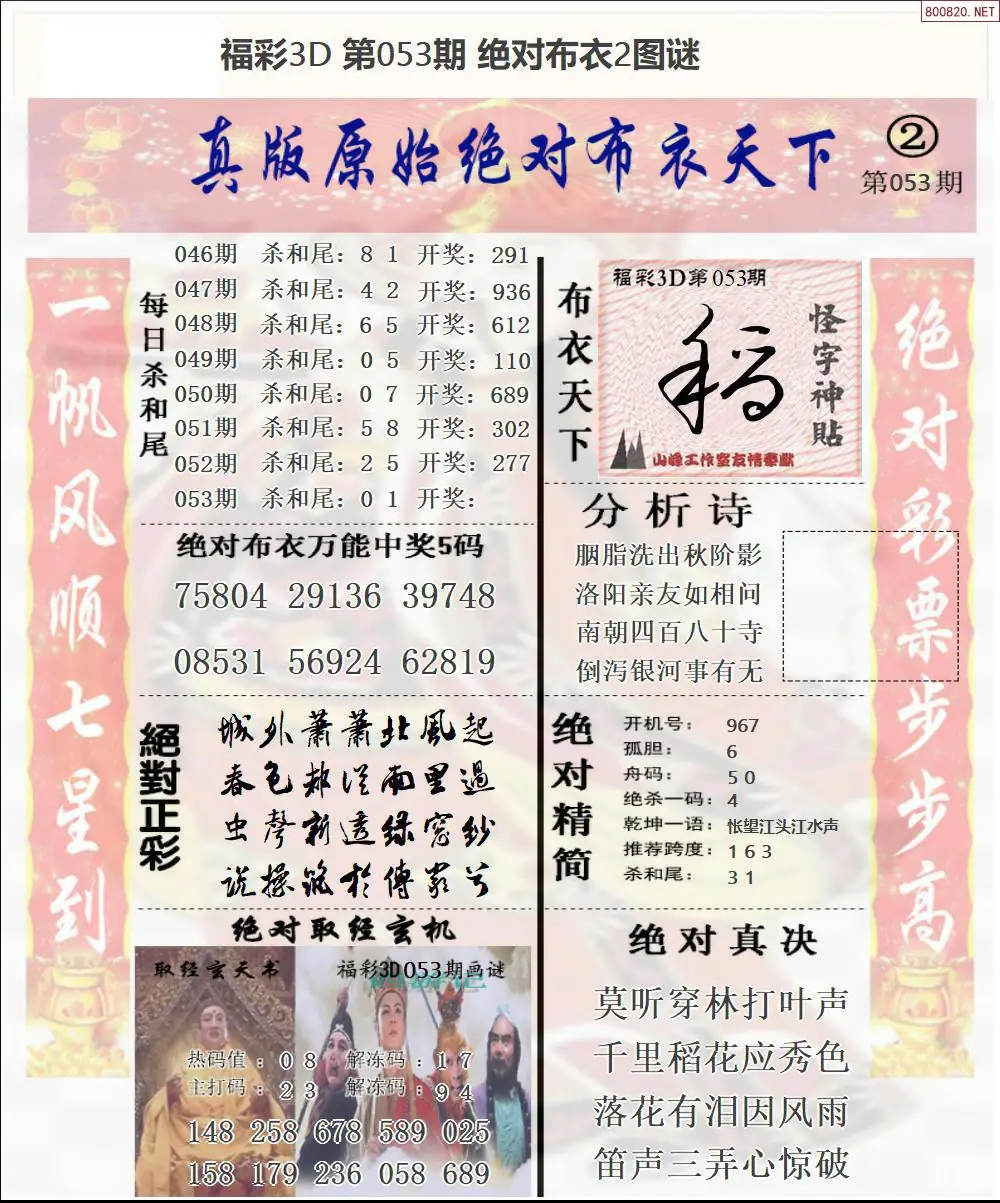 800820.NET
福彩3D 第053期 绝对布衣2图谜
真版原始绝对布衣天下
②
第053期
一帆风顺七星到
每日杀和尾
046期 杀和尾：8 1 开奖：291
047期 杀和尾：4 2 开奖：936
048期 杀和尾：6 5 开奖：612
049期 杀和尾：0 5 开奖：110
050期 杀和尾：0 7 开奖：689
051期 杀和尾：5 8 开奖：302
052期 杀和尾：2 5 开奖：277
053期 杀和尾：0 1 开奖：
绝对布衣万能中奖5码
75804 29136 39748
08531 56924 62819
絕對正彩
城外萧萧北風起
春色都从雨里過
虫聲新透绿窗纱
说操筑於傅岩兮
绝对取经玄机
取经玄天书
福彩3D053期画谜
热码值：0 8 解冻码：1 7
主打码：2 3 解冻码：9 4
148 258 678 589 025
158 179 236 058 689
布衣天下
福彩3D第053期
稻
怪字神貼
山峰工作室友情奉献
分析诗
胭脂洗出秋阶影
洛阳亲友如相问
南朝四百八十寺
倒泻银河事有无
绝对精简
开机号：967
孤胆：6
舟码：5 0
绝杀一码：4
乾坤一语：怅望江头江水声
推荐跨度：1 6 3
杀和尾：3 1
绝对真决
莫听穿林打叶声
千里稻花应秀色
落花有泪因风雨
笛声三弄心惊破
绝对彩票步步高